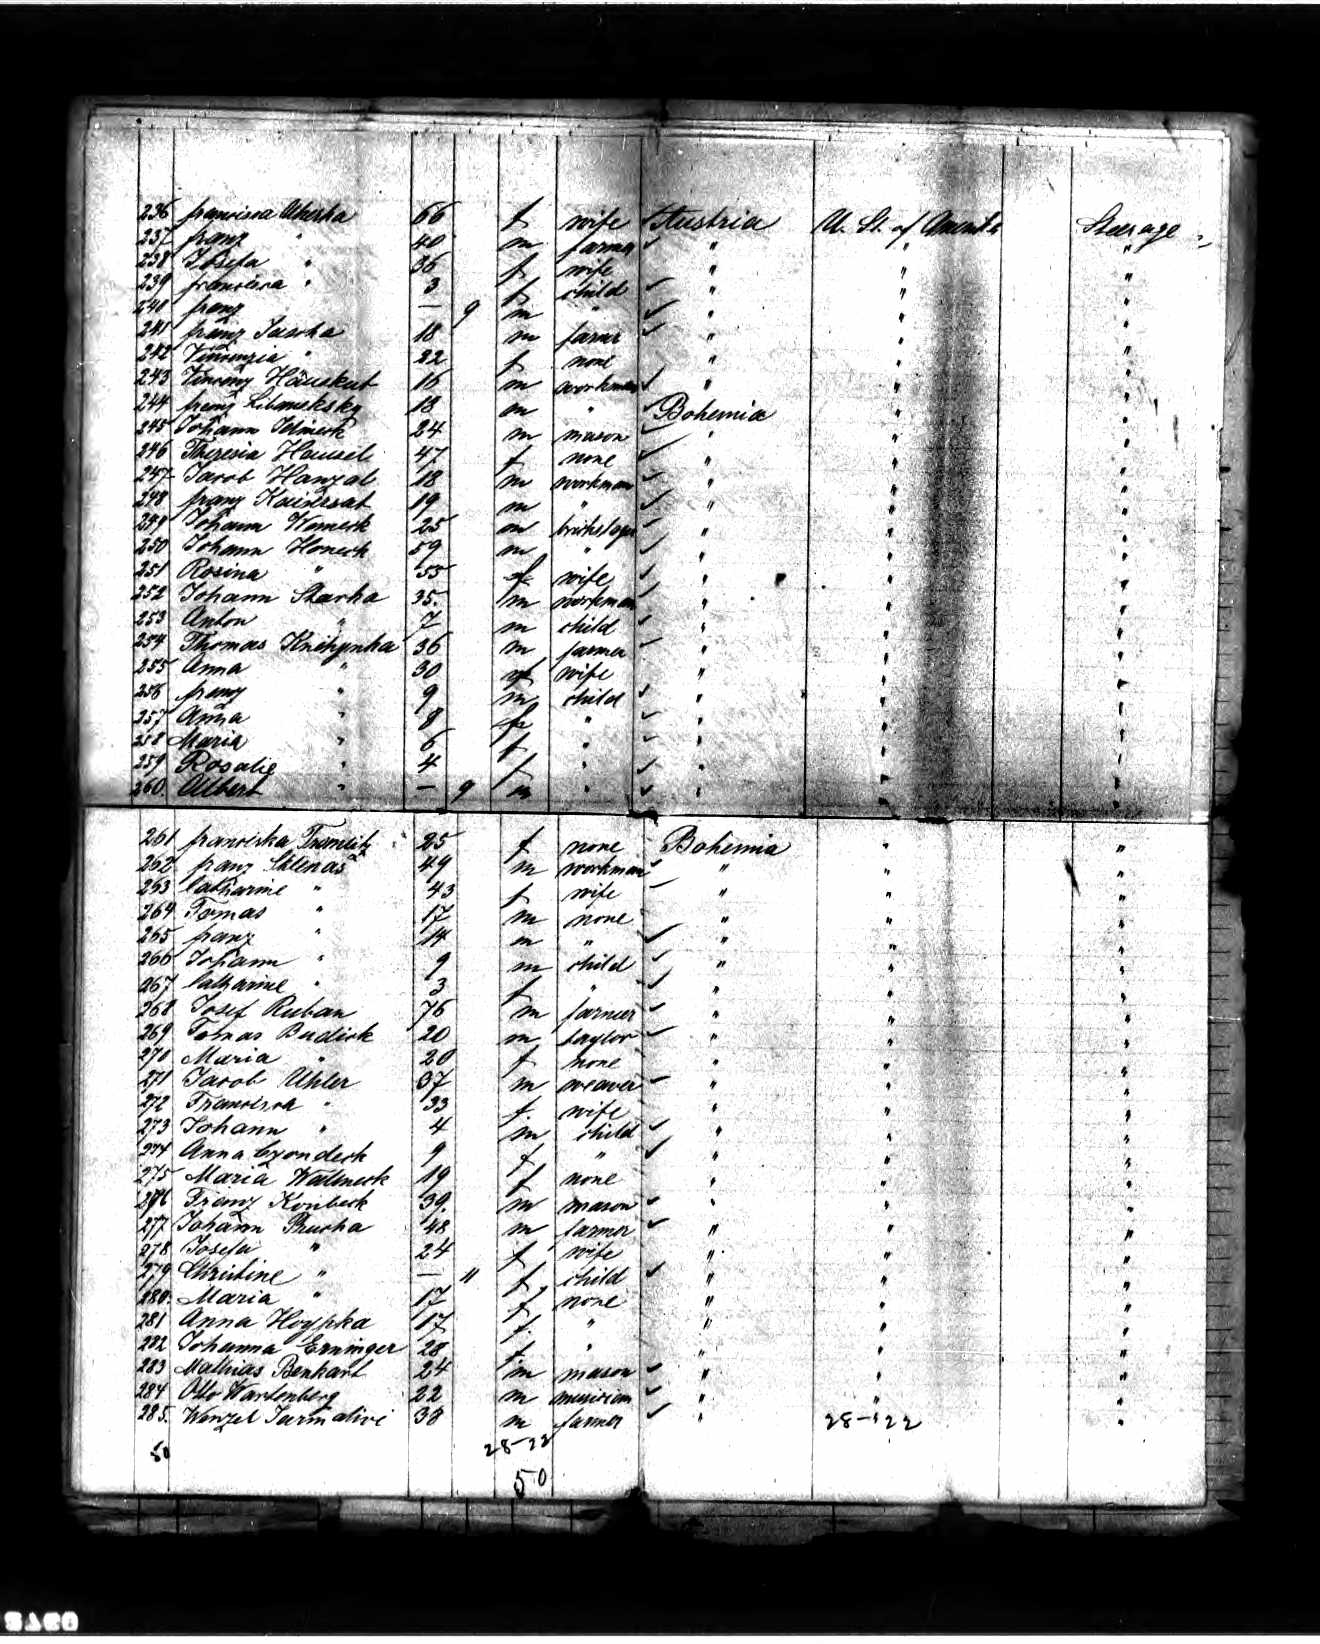 236 francisca Uherka 66 f wife Austria U. St. of America Steerage
237 franz " 40 m farmer " " "
238 Josefa " 36 f wife " " "
239 francisca " 3 f child " " "
240 franz — 9 m " " " "
241 franz 18 m farmer " " "
242 Vincenzia " 22 f none " " "
243 Vincenz 16 m workman " " "
244 franz 18 m " Bohemia " "
245 Johann 24 m mason " " "
246 Theresia Hausel 47 f none " " "
247 Jacob Hanzal 18 m workman " " "
248 franz 19 m " " " "
249 Johann 25 m " " "
250 Johann Honeck 59 m " " " "
251 Rosina " 55 f wife " " "
252 Johann Starka 35. m workman " " "
253 Anton " 7 m child " " "
254 Thomas Knihynka 36 m farmer " " "
255 Anna " 30 f wife " " "
256 franz " 9 m child " " "
257 Anna " 8 f " " " "
258 Maria " 6 f " " " "
259 Rosalie " 4 f " " " "
260. Albert " — 9 m " " " "
261 franciska 25 f none Bohemia " "
262 franz Sklenas 49 m workman " " "
263 Catharine " 43 f wife " "
264 Tomas " 17 m none " " "
265 franz " 14 m " " " "
266 Johann " 9 m child " " "
267 Catharine " 3 f " " " "
268 Josef Ruban 76 m farmer " " "
269 Tomas Budick 20 m taylor " " "
270 Maria " 20 f none " " "
271 Jacob Uhler 37 m weaver " " "
272 Francisca " 33 f. wife " " "
273 Johann " 4 m child " " "
274 Anna Czondeck 9 f " " " "
275 Maria 19 f none " " "
276 Franz Konbeck 39. m mason " " "
277 Johann Prucha 48 m farmer " " "
278 Josefa " 24 f wife " " "
279 Christine " — " f child " " "
280. Maria " 17 f none " " "
281 Anna Hoypka 17 f. " " " "
282 Johanna Erninger 28 f " " " "
283 Mathias Benkart 24 m mason " " "
284 Otto Wartenberg 22 m musician " " "
285. Wenzel 38 m farmer " 28-22 "
50 28-22
50